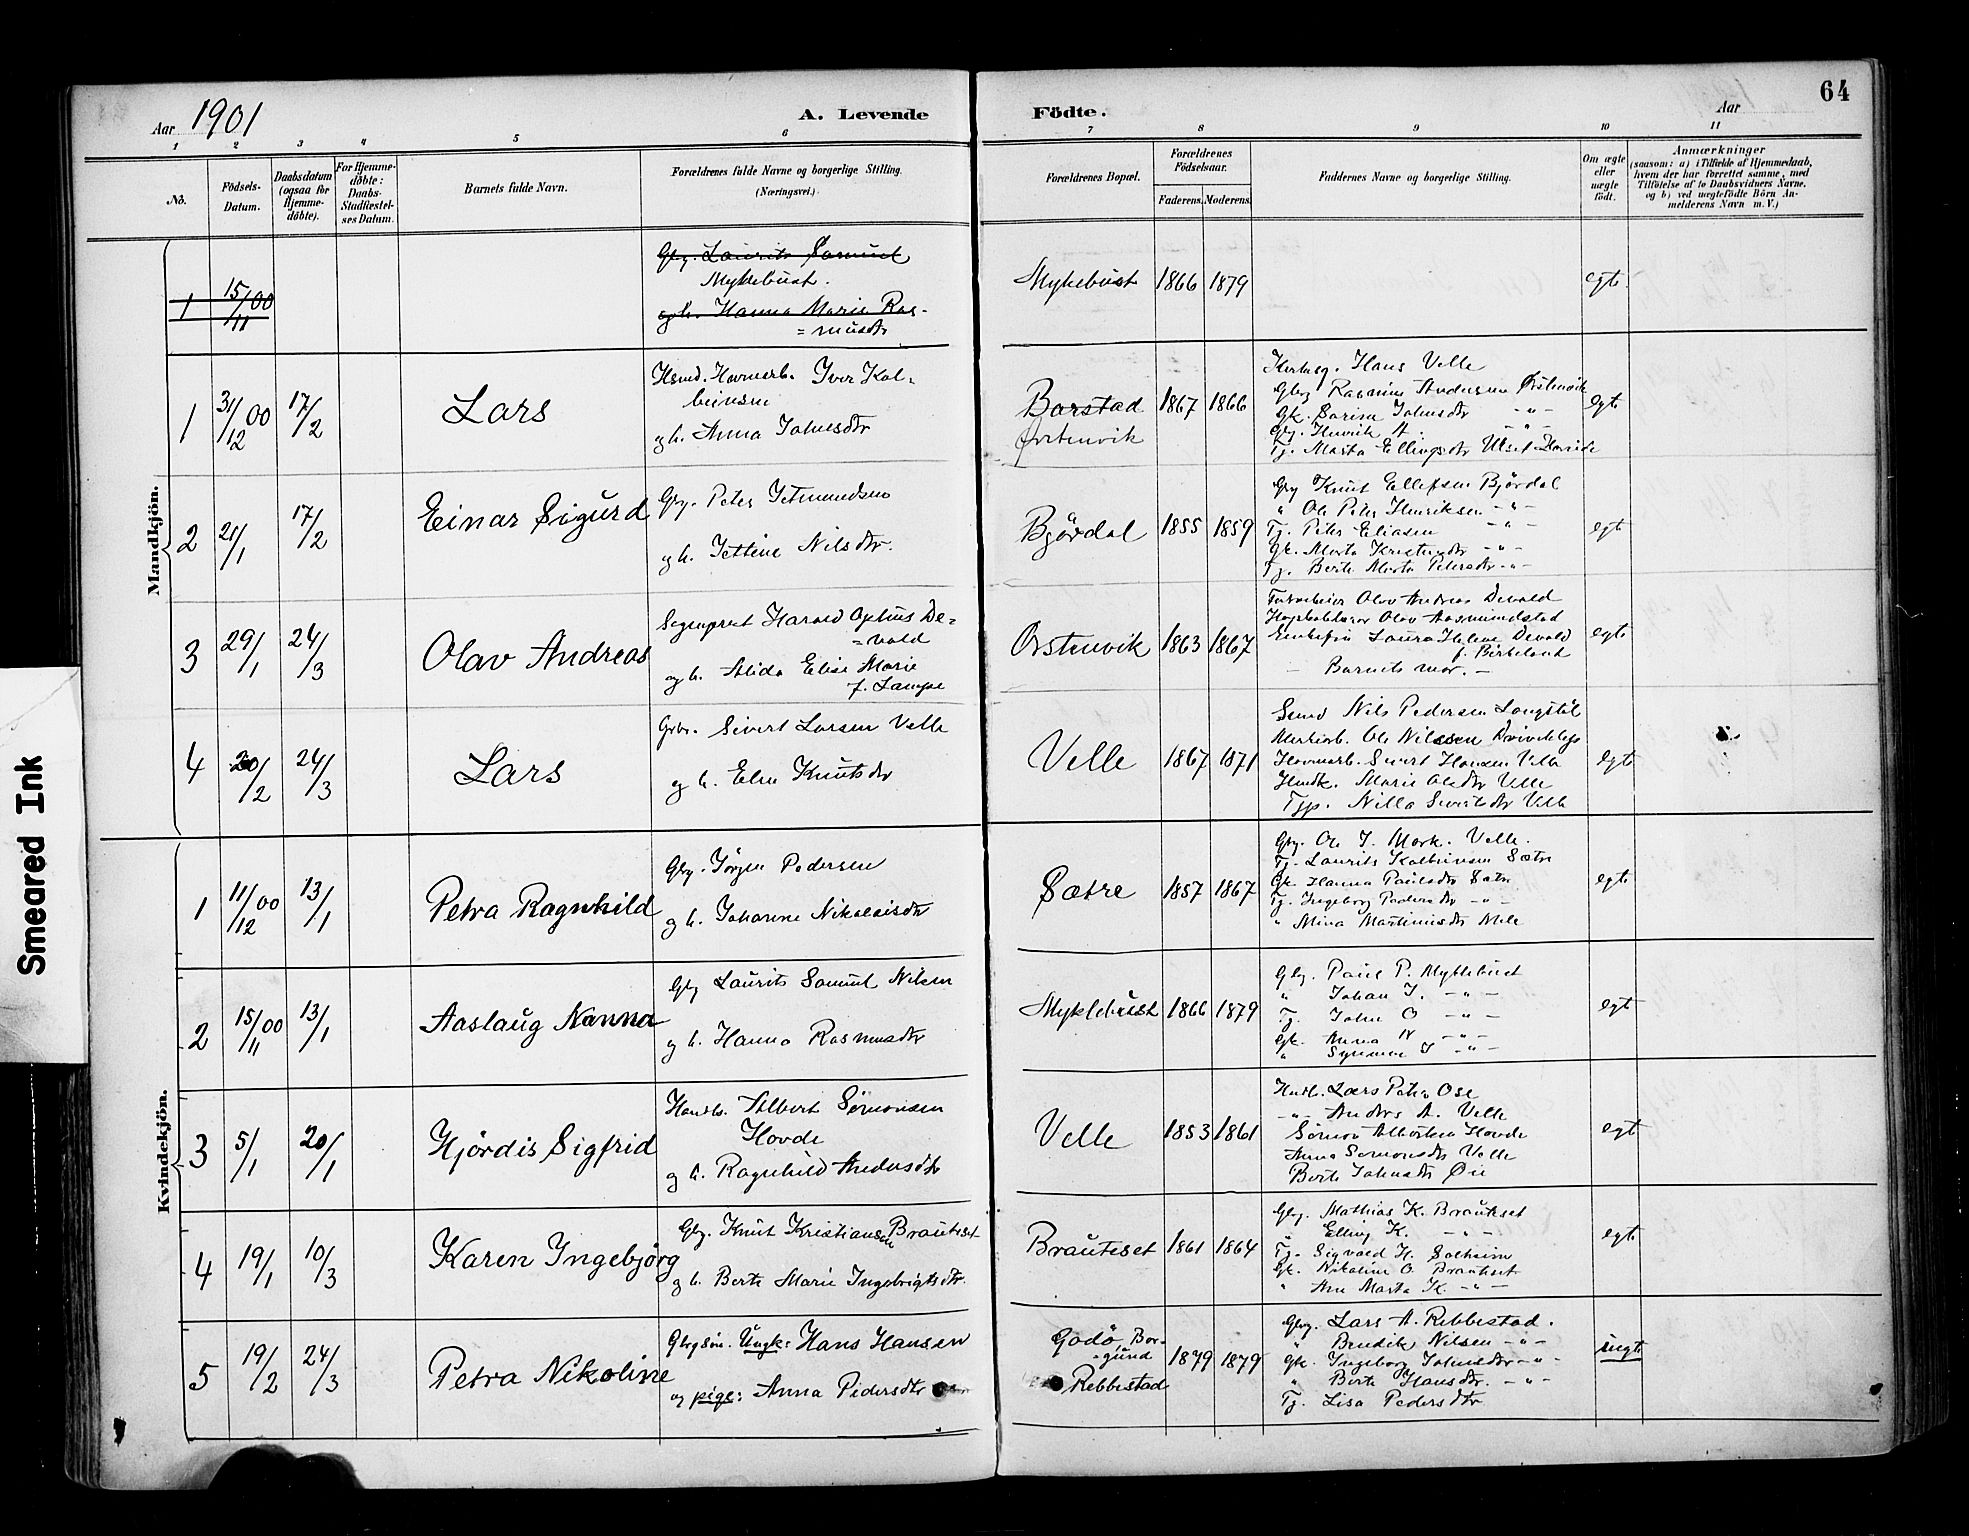 64
Aar 1901
A. Levende
Fødte.
Aar
1 2 3 4 5 6 7 8 9 10 11
No.
Fødsels-
Datum.
Daabsdatum
(ogsaa for
Hjemme-
døbte).
For Hjemme-
døbte:
Daabs-
Stadfæstel-
ses Datum.
Barnets fulde Navn.
Forældrenes fulde Navne og borgerlige Stilling.
(Næringsvei.)
Forældrenes Bopæl.
Forældrenes
Fødselsaar.
Faderens. Moderens.
Faddernes Navne og borgerlige Stilling.
Om ægte
eller
uægte
født.
Anmærkninger
(saasom: a) i Tilfælde af Hjemmedaab,
hvem der har forrettet samme, med
Tilføielse af to Daabsvidners Navne,
og b) ved uægtefødte Børn An-
melderens Navn m. V.)
Mandkjön.
1 15/11 00
Gbr. Laurits Samuel
Myklebust.
og h. Hanna Marie Ras-
=musdtr
Myklebust 1866 1879 egt.
1 31/12 00 17/2 Lars
Husmd. Havnearb. Iver Kol-
beinsen
og h. Anna Johnsdtr
Barstad
Ørstenvik
1867 1866
Hans Velle
Gbrg Rasmus Andersen Ørstenvik
Gk. Sarine Johnsdtr -"-
Gbr. Henrik A. -"-
Tj. Marta Ellingsdtr Ulset Hareide
egt
2 21/1 17/2 Einar Sigurd
Gbr. Peter Jetmundsen
og h. Jettine Nilsdtr.
Bjørdal 1855 1859
Gbr Knut Ellefsen Bjørdal
" Ole Peter Henriksen -"-
Tj. Peter Eliasen -"-
Gk. Marta Kristensdtr -"-
Tj. Berte Marta Petersdtr -"-
egt
3 29/1 24/3 Olav Andreas
Sogneprest Harald Ophus De=
=vold
og h. Alida Elise Marie
f. Lampe
Ørstenvik 1863 1867
Olav Andreas Devold
Olav Aasmundstad
Enkefru Laura Helene Devold
f. Birkeland
– Barnets mor. –
egt
4 20/2 24/3 Lars
Gbr. Sivert Larsen Velle
og h. Elen Knutsdtr
Velle 1867 1871
Nils Pedersen
Ole Nilssen
Havnearb. Sivert Hansen Velle
Marie Olsdtr Velle
Tjp. Nilla Sivertsdtr Velle
egt
Kvindekjön.
1 11/12 00 13/1 Petra Ragnhild
Gbr. Jørgen Pedersen
og h. Johanne Nikolaisdtr
Sætre 1857 1867
Gbr. Ole J. Mork. Velle.
Tj. Laurits Kolbeinsen Sætre
Gk. Hanna Paulsdtr Sætre
Tj. Ingeborg Pedersdtr -"-
" Mina Martinusdtr Mele
egt
2 15/11 00 13/1 Aaslaug Nanna
Gbr Laurits Samuel Nilsen
og h. Hanna Rasmusdtr
Myklebust 1866 1879
Gbr. Paul P. Myklebust
" Johan J. -"-
Tj. John O -"-
Gk. Anna N -"-
" Synneve J -"-
egt
3 5/1 20/1 Hjördis Sigfrid
Handb. Albert Sømonsen
Hovde
og h. Ragnhild Andersdtr
Velle 1853 1861
Lars Peter Ose
-"- Anders A. Velle
Sømon Albertsen Hovde
Anna Sømonsdtr Velle
Berte Johnsdtr Øie
egt
4 19/1 10/3 Karen Ingebjörg
Gbr. Knut Kristiansen Brauteset
og h. Berte Marie Ingebrigtsdtr.
Brauteset 1861 1864
Gbr. Mathias K. Brauteset
" Elling K. -"-
Tj. Sigvald H. Solheim
Gk. Nikoline O Brauteset
" Ane Marta K. -"-
egt
5 19/2 24/3 Petra Nikoline
Gbrgsøn. Ungk: Hans Hansen
og pige: Anna Pedersdtr
Godø, Bor-
=gund
Rebbestad
1879 1879
Gbr. Lars A. Rebbestad.
" Bendik Nilsen -"-
Gk. Ingeborg Johnsdtr -"-
" Berte Hansdtr. -"-
Tj. Lisa Pedersdtr
uegt
Smeared Ink